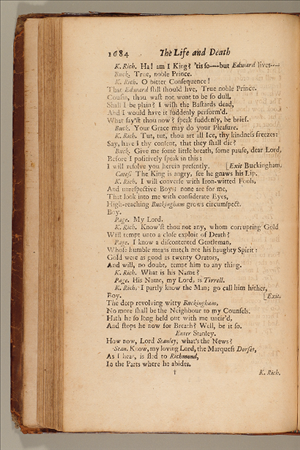 1684 The Life and Death
K. Rich. Ha! am I King? 'tis so----but Edward lives----
Buck. True, noble Prince.
K. Rich. O bitter Consequence!
That Edward still should live, True noble Prince.
Cousin, thou wast not wont to be so dull.
Shall I be plain? I wish the Bastards dead,
And I would have it suddenly perform'd.
What say'st thou now? speak suddenly, be brief.
Buck. Your Grace may do your Pleasure.
K. Rich. Tut, tut, thou art all Ice, thy kindness freezes:
Say, have I thy consent, that they shall die?
Buck. Give me some little breath, some pause, dear Lord,
Before I positively speak in this:
I will resolve you herein presently. [Exit Buckingham.
Catef. The King is angry, see he gnaws his Lip.
K. Rich. I will converse with Iron-witted Fools,
And unrespective Boys; none are for me,
That look into me with considerate Eyes,
High-reaching Buckingham grows circumspect.
Boy.
Page. My Lord.
K. Rich. Know'st thou not any, whom corrupting Gold
Will tempt unto a close exploit of Death?
Page. I know a discontented Gentleman,
Whose humble means match not his haughty Spirit:
Gold were as good as twenty Orators,
And will, no doubt, tempt him to any thing.
K. Rich. What is his Name?
Page. His Name, my Lord, is Tirrell.
K. Rich. I partly know the Man; go call him hither,
Boy. [Exit.
The deep revolving witty Buckingham,
No more shall be the Neighbour to my Counsels.
Hath he so long held out with me untir'd,
And stops he now for Breath? Well, be it so.
Enter Stanley.
How now, Lord Stanley, what's the News?
Stan. Know, my loving Lord, the Marquess Dorset,
As I hear, is fled to Richmond,
In the Parts where he abides.
K. Rich.